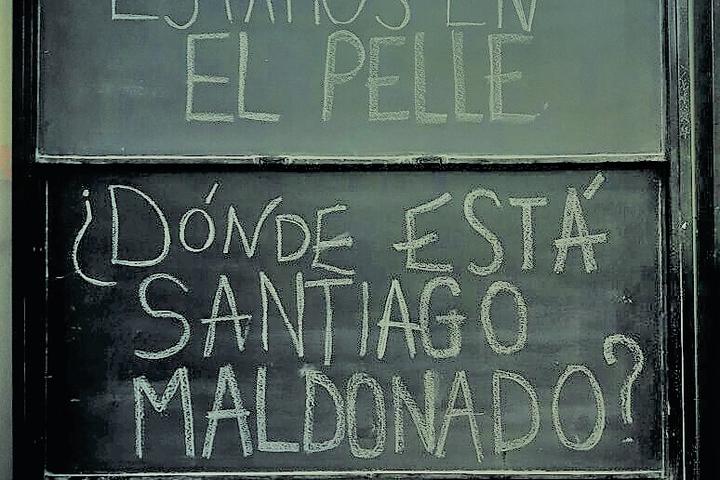 ESTAMOS EN
EL PELLE.
¿DÓNDE ESTÁ
SANTIAGO
MALDONADO?